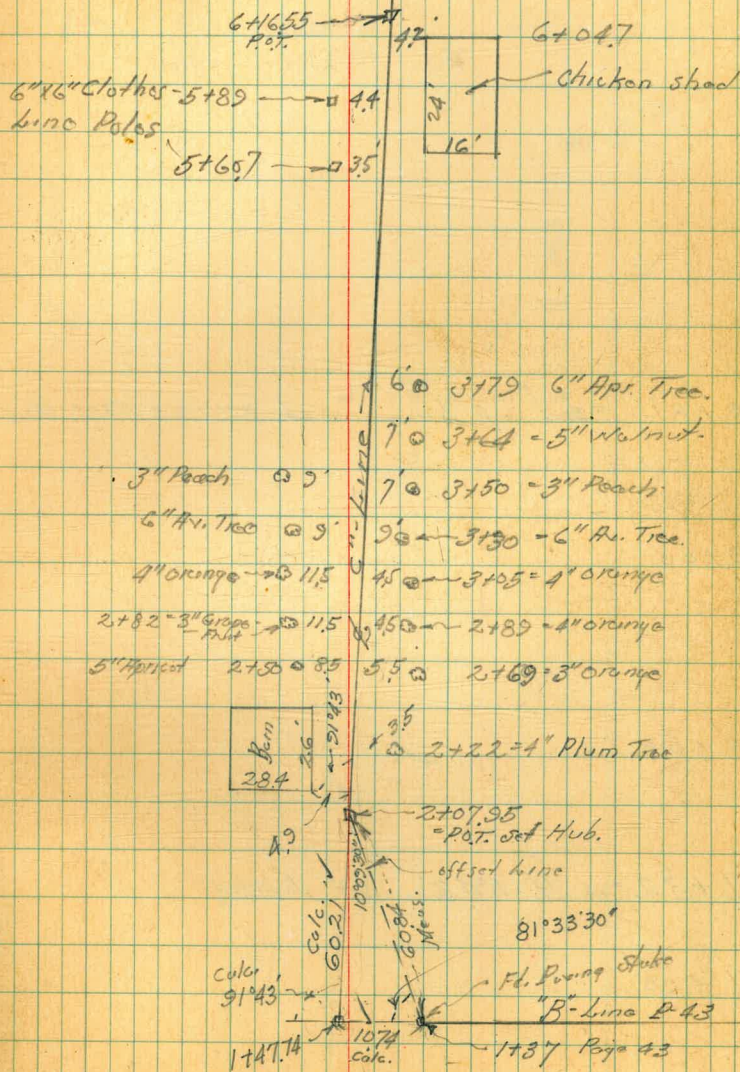 6+16.55
P.O.T.
4.2
6+04.7
Chicken shed
24'
16'
6"x6" Clothes - 5+89
4.4
Line Poles
5+60.7
3.5'
6' 3+79 6" Apr. Tree.
7' 3+64 = 5" Walnut.
3" Peach 9'
7' 3+50 = 3" Peach
6" Av. Tree 9'
9' 3+30 = 6" Av. Tree.
4" Orange 11.5
4.5 3+05 = 4" Orange
2+82 = 3" Grape-Fruit 11.5
4.5 2+89 = 4" Orange
5" Apricot 2+50 8.5
5.5 2+69 = 3" Orange
"C"-Line
91°43'
Barn
26'
28.4
3.5
2+22 = 4" Plum Tree
4.9
2+07.95
= P.O.T. Set Hub.
offset Line
Calc.
60.21
60.84
Meas.
81°33'30"
Calc.
91°43'
Fd. Paving Stake
"B"-Line P-43
1+47.74
10.74
Calc.
1+37 Page 43